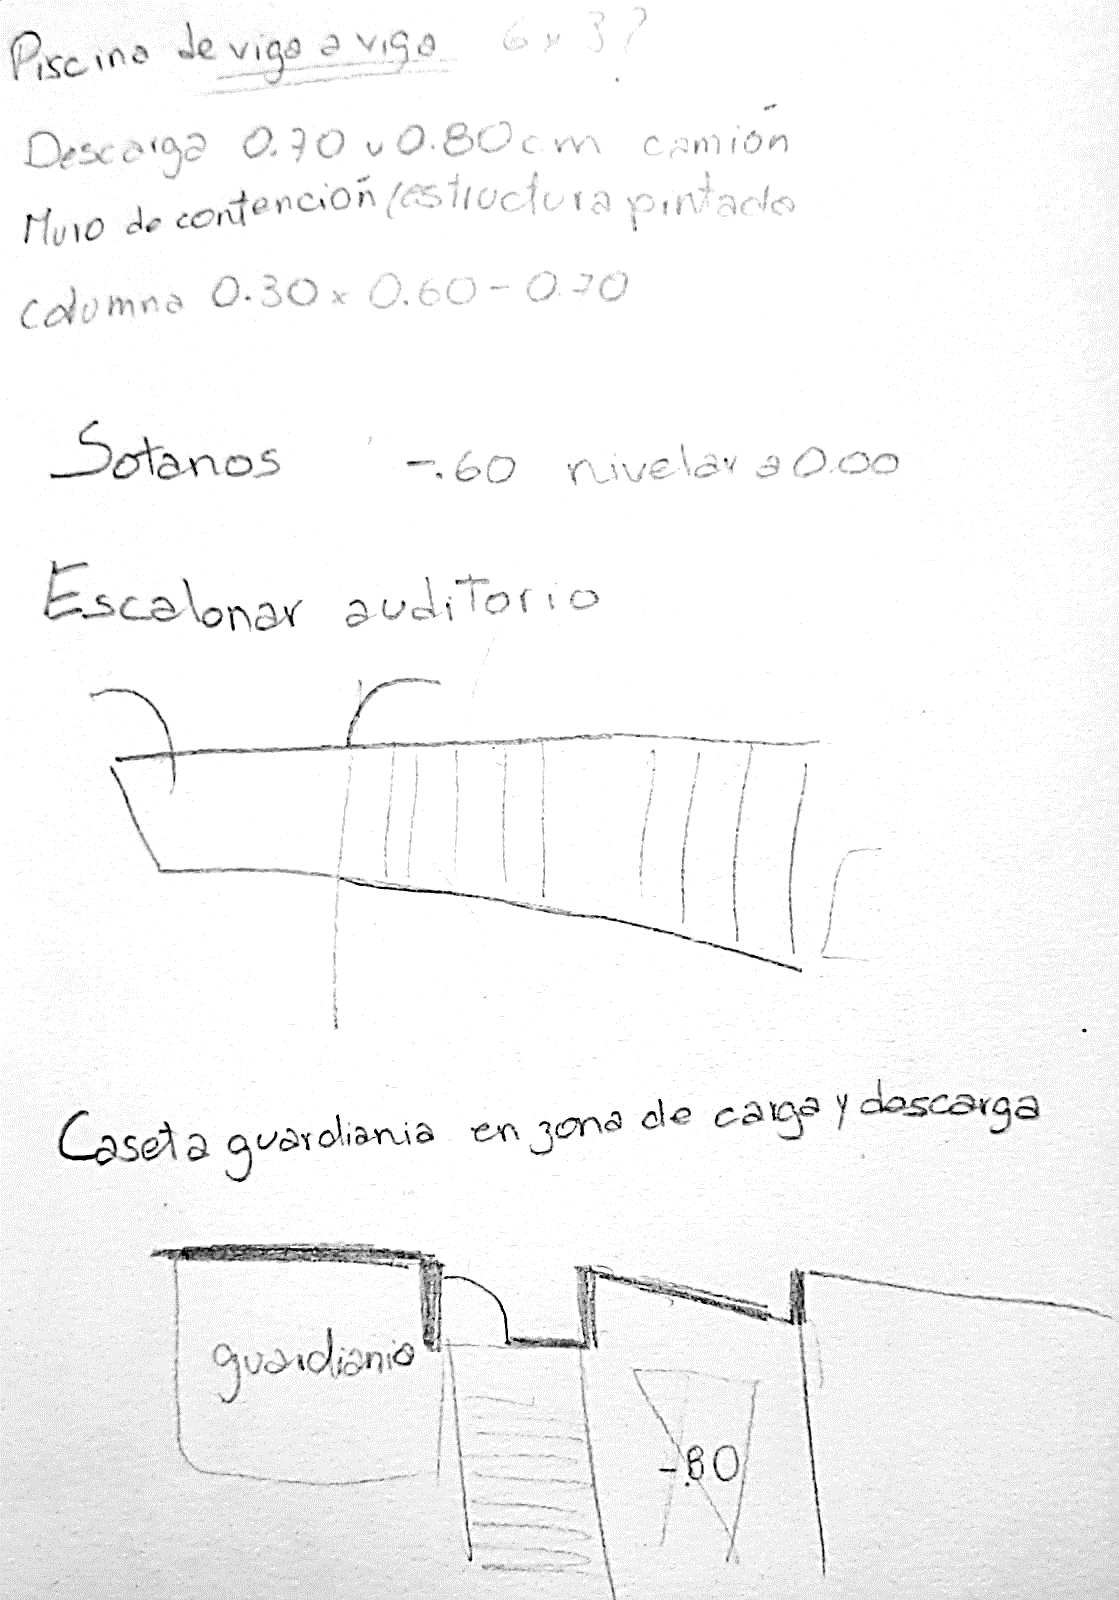 Piscina de viga a viga 6 x 3?
Descarga 0.70 u 0.80cm camión
Muro de contención/estructura pintada
columna 0.30 x 0.60 - 0.70
Sotanos -.60 nivelar a 0.00
Escalonar auditorio
Caseta guardiania en zona de carga y descarga
guardiania
-.80